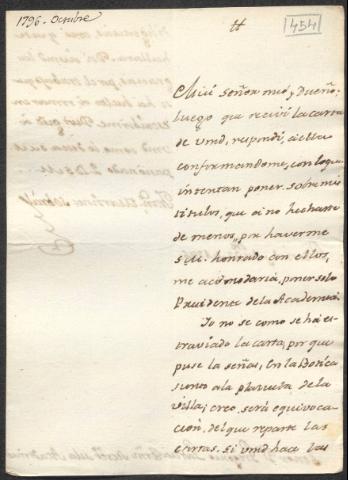 1796. Octubre
454
Muí señor mío, y Dueño:
luego que reciví la carta
de vmd, respondí, a ella
confirmandome, con lo que
intentan poner, sobre mis
titulos, que si no hechare
de menos, por haverme
S.M. honrado con ellos,
me acomodaria, poner solo
Presidente de la Academia.
Io no se como se há es-
traviado la carta, por que
puse la señas, En la Botica
junto a la plazuela de la
villa; creo, será equivoca-
cion, del que reparte las
cartas. si vmd hace las